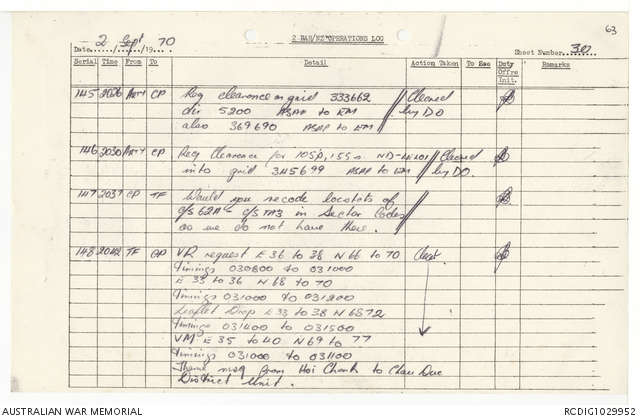 63
2 RAR/NZ OPERATIONS LOG
Date 2 Sept 19 70
Sheet Number 30
Serial Time From To Detail Action Taken To Sec Duty Offrs Init. Remarks
145 2026 Arty CP Req clearance on grid 333662 Cleared
dir 5200 ASAP to EM by DO
also 369690 ASAP to EM
146 2030 Arty CP Req Clearance for 105, 155 Cleared
into grid 345699 ASAP to EM by DO.
147 2037 CP TF Would you recode locstats of
c/s in Sector Codes
as we do not have there.
148 2042 TF CP VR request E 36 to 38 N 66 to 70
Timings 030800 to 031000
E 33 to 36 N 68 to 70
Timings 031000 to 031200
Leaflet Drop E 33 to 38 N 6872
Timings 031400 to 031500
VM E 35 to 40 N 69 to 77
Timings 031000 to 031100
Theme msg from Hoi Chanh to Chau Duc
District Unit.
AUSTRALIAN WAR MEMORIAL
RCDIG1029952